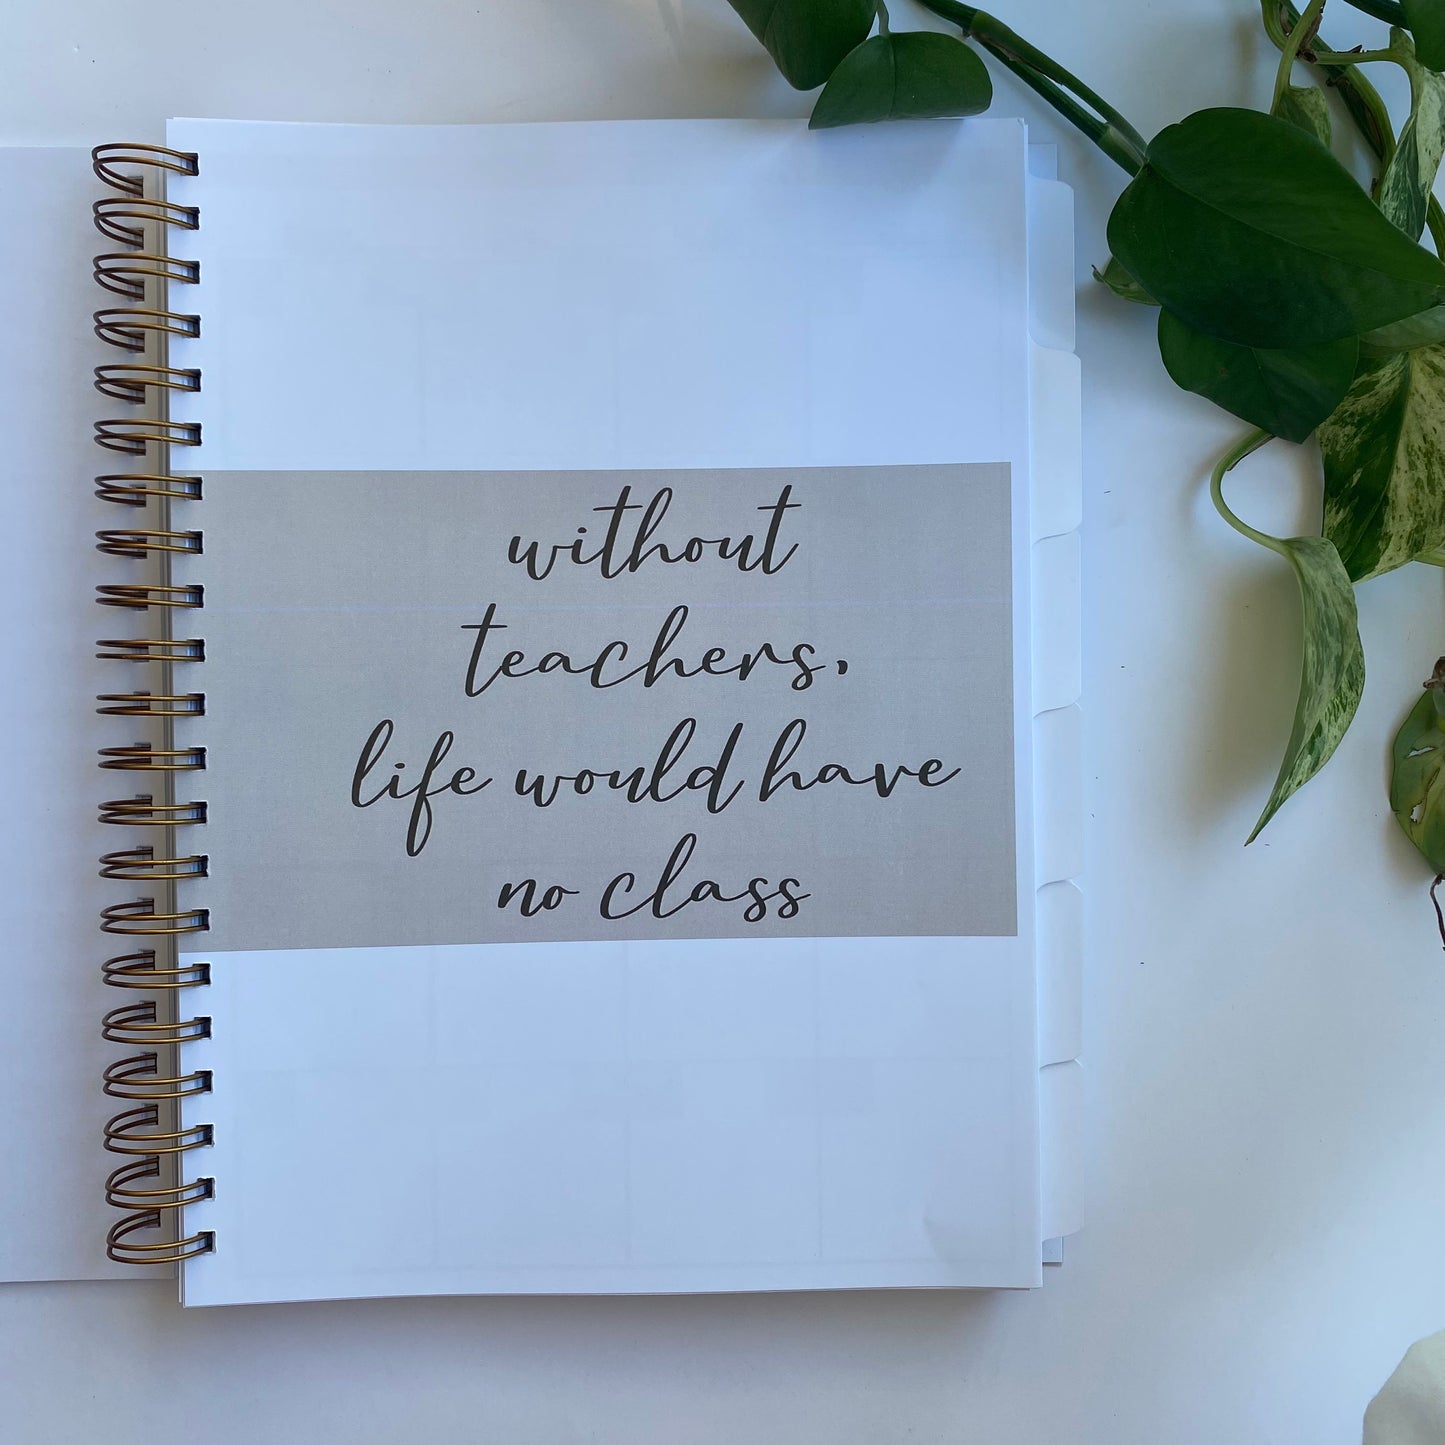 without
teachers,
life would have
no class